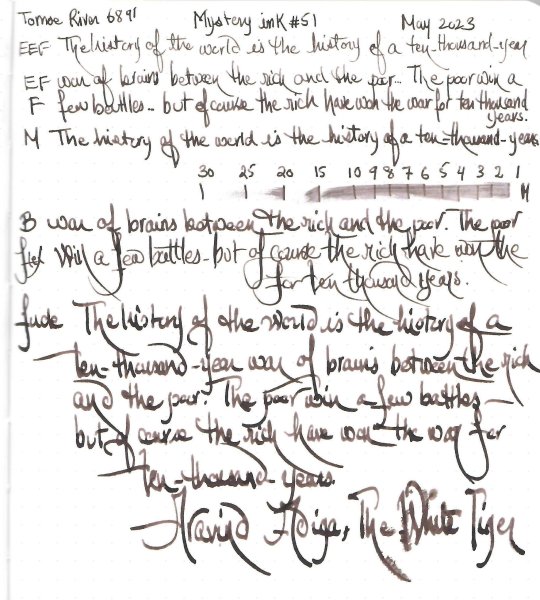 Tomoe River 68gr Mystery ink #51 May 2023
EEF The history of the world is the history of a ten-thousand-year
EF war of brains between the rich and the poor... The poor win a
F few battles... but of course the rich have won the war for ten thousand
years.
M The history of the world is the history of a ten-thousand-years
30 25 20 15 10 9 8 7 6 5 4 3 2 1
M
B war of brains between the rich and the poor. The poor
flex win a few battles - but of course the rich have won the
for ten thousand years.
fude The history of the world is the history of a
ten-thousand-year war of brains between the rich
and the poor. The poor win a few battles -
but of course the rich have won the war for
ten-thousand-years.
Aravind Adiga, The White Tiger